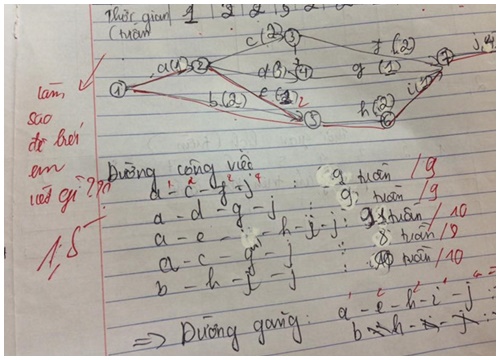 Thời gian 1 2 2 3 2 2
(tuần
c(2) ③ f(2)
a(1) ② d(3) ④ g(1) ⑦ j(4)
① e(2) 2 i(2)
b(2) ⑤ h(2) ⑥
làm
sao
để biết
em
viết gì ???
1,5
Đường công việc
a - c - f - j : 9 tuần / 9
a - d - g - j : 9 tuần / 9
a - e - h - i - j : tuần / 10
a - c - g - j : 8 tuần / 8
b - h - i - j : 10 tuần / 10
=> Đường găng: a - e - h - i - j
b - h - i - j